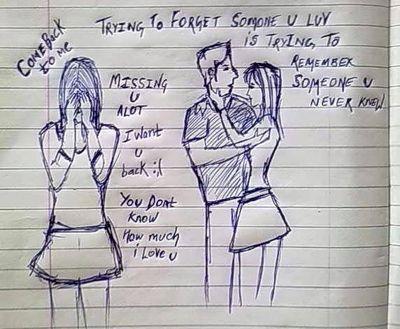 COME BACK
to me
TRYING TO FORGET SOMONE U LUV
IS TRYING TO
REMEMBER
SOMEONE U
NEVER KNEW
MISSING
U
ALOT
I WANT
U
back :(
YOU DONT
KNOW
HOW much
i Love u